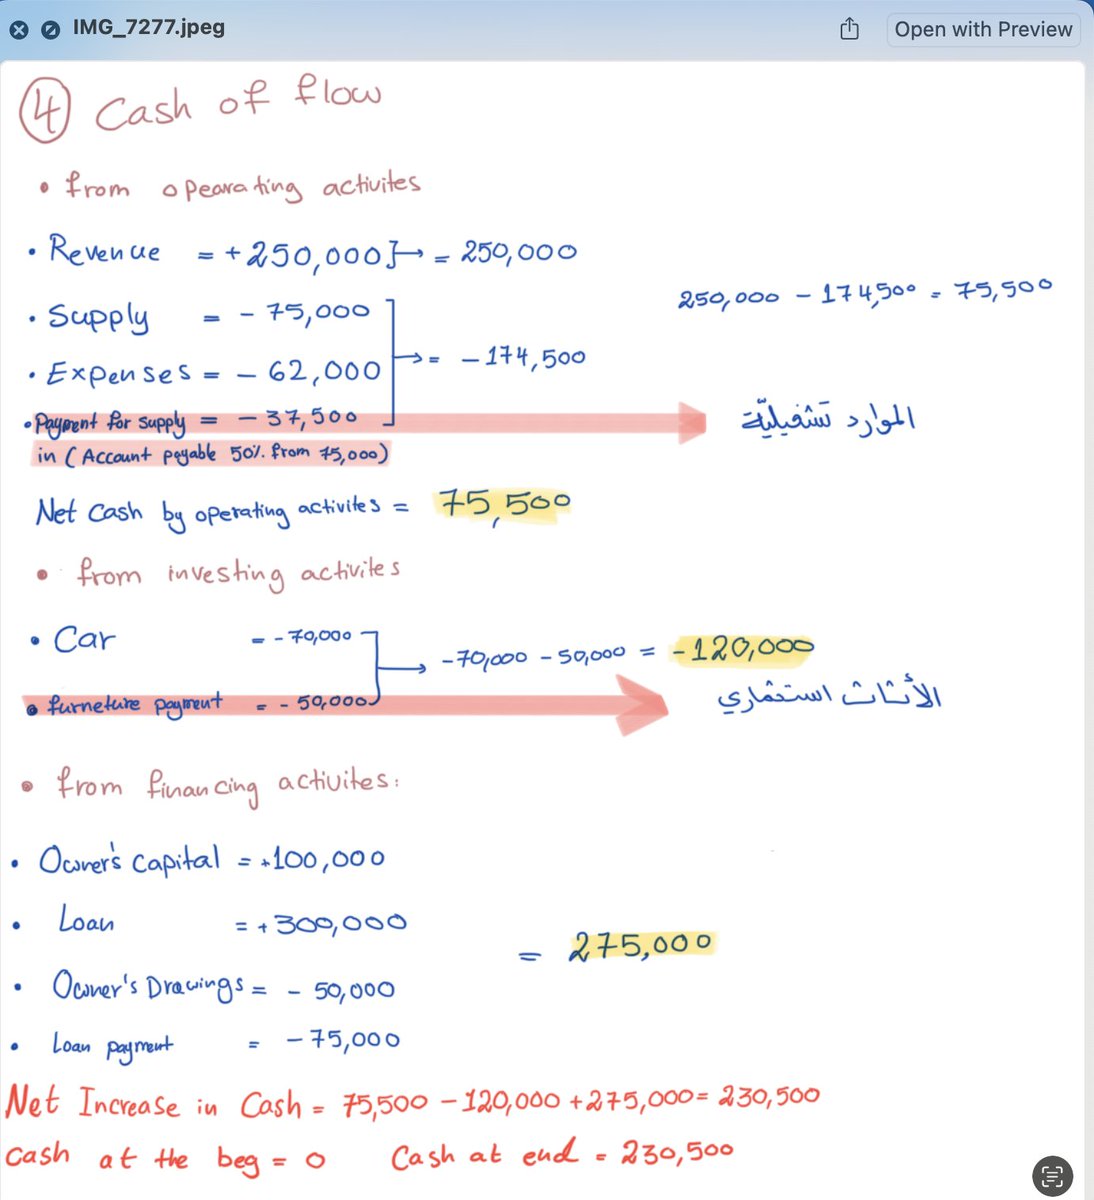 IMG_7277.jpeg
Open with Preview
4 Cash of flow
• from opearating activites
• Revenue = +250,000 } → = 250,000
250,000 - 174,500 = 75,500
• Supply = - 75,000
• Expenses = - 62,000 → = -174,500
• Payment for supply = - 37,500
in (Account payable 50% from 75,000)
الموارد تشغيليّة
Net Cash by operating activites = 75,500
• from investing activites
• Car = -70,000
→ -70,000 - 50,000 = -120,000
• furneture payment = - 50,000
الأثاث استثماري
• from financing activites:
• Owner's capital = +100,000
• Loan = +300,000
= 275,000
• Owner's Drawings = - 50,000
• Loan payment = -75,000
Net Increase in Cash = 75,500 -120,000 +275,000= 230,500
Cash at the beg = 0 Cash at end = 230,500